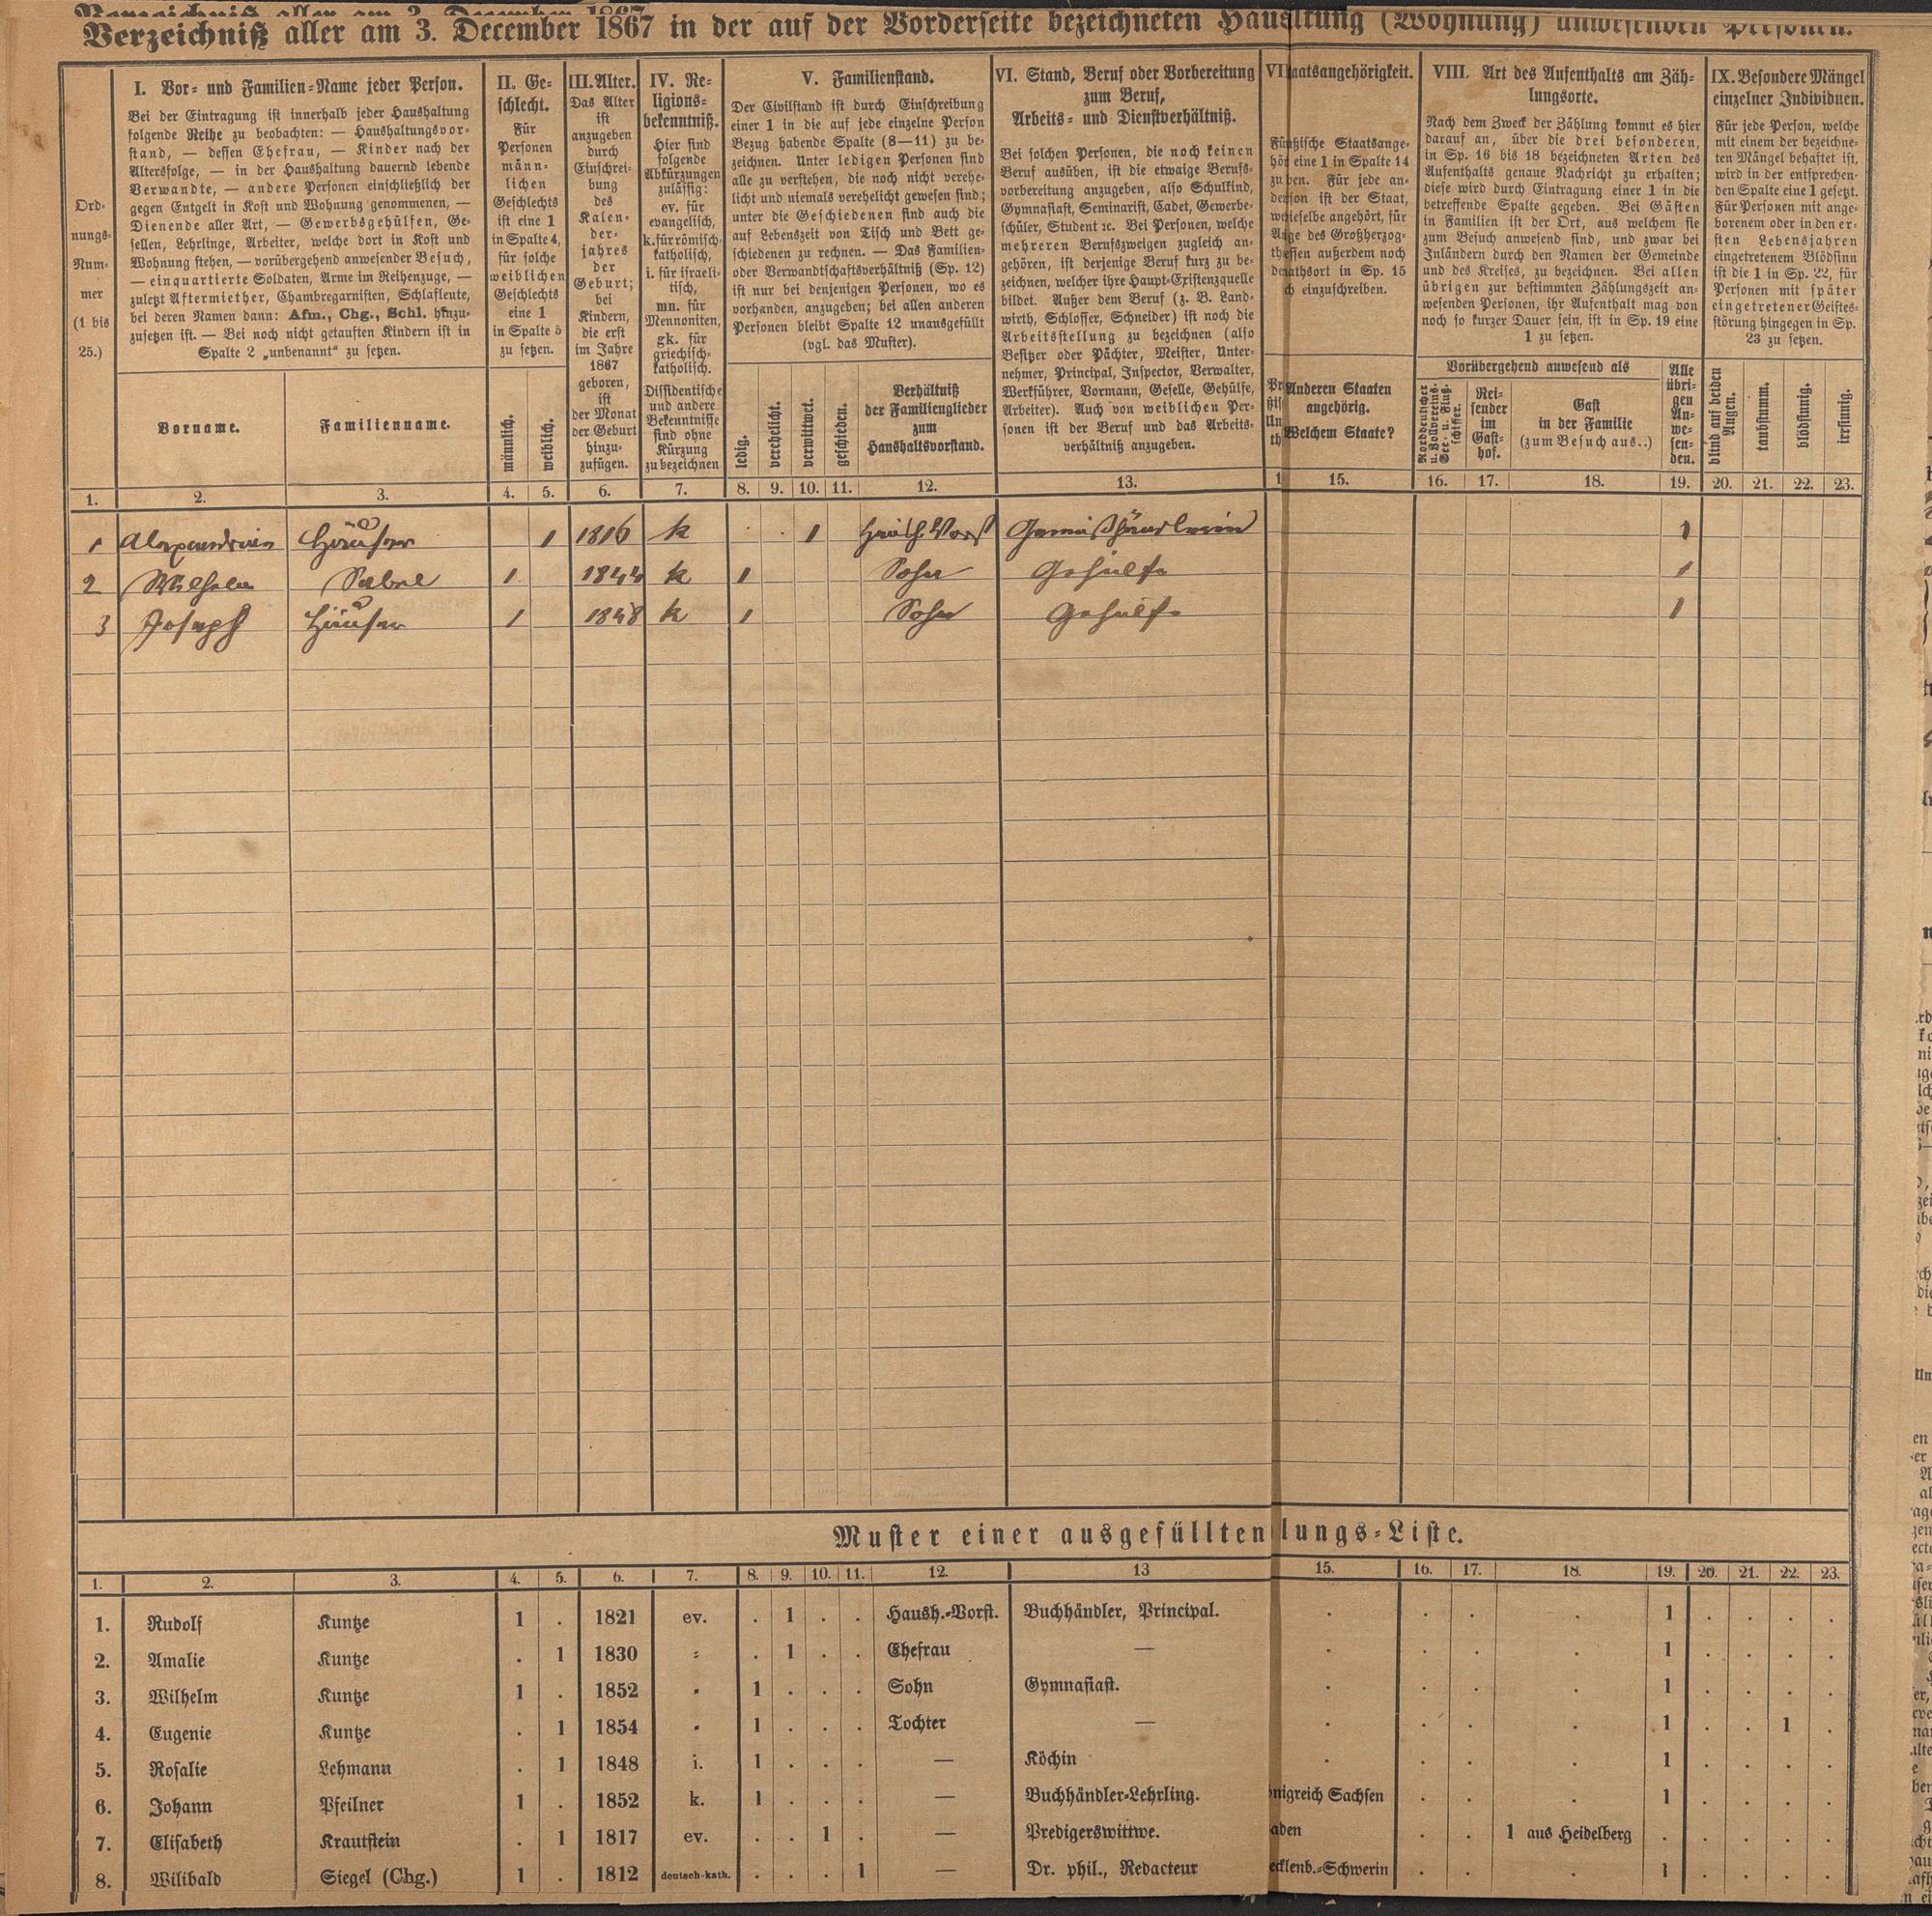 Verzeichniß aller am 3. December 1867 in der auf der Vorderseite bezeichneten Haushaltung (Wohnung) anwesenden Personen.
Ord-
nungs-
Num-
mer
(1 bis
25.)
I. Vor- und Familien-Name jeder Person.
Bei der Eintragung ist innerhalb jeder Haushaltung
folgende Reihe zu beobachten: — Haushaltungsvor-
stand, — dessen Ehefrau, — Kinder nach der
Altersfolge, — in der Haushaltung dauernd lebende
Verwandte, — andere Personen einschließlich der
gegen Entgelt in Kost und Wohnung genommenen, —
Dienende aller Art, — Gewerbsgehülfen, Ge-
sellen, Lehrlinge, Arbeiter, welche dort in Kost und
Wohnung stehen, — vorübergehend anwesender Besuch,
— einquartierte Soldaten, Arme im Reihenzuge, —
zuletzt Aftermiether, Chambregarnisten, Schlafleute,
bei deren Namen dann: Afm., Chg., Schl. hinzu-
zusetzen ist. — Bei noch nicht getauften Kindern ist in
Spalte 2 „unbenannt“ zu setzen.
Vorname.
Familienname.
II. Ge-
schlecht.
Für
Personen
männ-
lichen
Geschlechts
ist eine 1
in Spalte 4,
für solche
weiblichen
Geschlechts
eine 1
in Spalte 5
zu setzen.
männlich.
weiblich.
III. Alter.
Das Alter
ist
anzugeben
durch
Einschrei-
bung
des
Kalen-
der-
jahres
der
Geburt;
bei
Kindern,
die erst
im Jahre
1867
geboren,
ist
der Monat
der Geburt
hinzu-
zufügen.
IV. Re-
ligions-
bekenntniß.
Hier sind
folgende
Abkürzungen
zulässig:
ev. für
evangelisch,
k. für römisch-
katholisch,
i. für israeli-
tisch,
mn. für
Mennoniten,
gk. für
griechisch-
katholisch.
Dissidentische
und andere
Bekenntnisse
sind ohne
Kürzung
zu bezeichnen
V. Familienstand.
Der Civilstand ist durch Einschreibung
einer 1 in die auf jede einzelne Person
Bezug habende Spalte (8—11) zu be-
zeichnen. Unter ledigen Personen sind
alle zu verstehen, die noch nicht verehe-
licht und niemals verehelicht gewesen sind;
unter die Geschiedenen sind auch die
auf Lebenszeit von Tisch und Bett ge-
schiedenen zu rechnen. — Das Familien-
oder Verwandtschaftsverhältniß (Sp. 12)
ist nur bei denjenigen Personen, wo es
vorhanden, anzugeben; bei allen anderen
Personen bleibt Spalte 12 unausgefüllt
(vgl. das Muster).
ledig.
verehelicht.
verwittwet.
geschieden.
Verhältniß
der Familienglieder
zum
Haushaltsvorstand.
VI. Stand, Beruf oder Vorbereitung
zum Beruf,
Arbeits- und Dienstverhältniß.
Bei solchen Personen, die noch keinen
Beruf ausüben, ist die etwaige Berufs-
vorbereitung anzugeben, also Schulkind,
Gymnasiast, Seminarist, Cadet, Gewerbe-
schüler, Student ꝛc. Bei Personen, welche
mehreren Berufszweigen zugleich an-
gehören, ist derjenige Beruf kurz zu be-
zeichnen, welcher ihre Haupt-Existenzquelle
bildet. Außer dem Beruf (z. B. Land-
wirth, Schlosser, Schneider) ist noch die
Arbeitsstellung zu bezeichnen (also
Besitzer oder Pächter, Meister, Unter-
nehmer, Principal, Inspector, Verwalter,
Werkführer, Vormann, Geselle, Gehülfe,
Arbeiter). Auch von weiblichen Per-
sonen ist der Beruf und das Arbeits-
verhältniß anzugeben.
VII aatsangehörigkeit.
eine 1 in Spalte 14
Für jede an-
ist der Staat,
angehört, für
des Großherzog-
außerdem noch
in Sp. 15
einzuschreiben.
Anderen Staaten
angehörig.
Welchem Staate?
VIII. Art des Aufenthalts am Zäh-
lungsorte.
Nach dem Zweck der Zählung kommt es hier
darauf an, über die drei besonderen,
in Sp. 16 bis 18 bezeichneten Arten des
Aufenthalts genaue Nachricht zu erhalten;
diese wird durch Eintragung einer 1 in die
betreffende Spalte gegeben. Bei Gästen
in Familien ist der Ort, aus welchem sie
zum Besuch anwesend sind, und zwar bei
Inländern durch den Namen der Gemeinde
und des Kreises, zu bezeichnen. Bei allen
übrigen zur bestimmten Zählungszeit an-
wesenden Personen, ihr Aufenthalt mag von
noch so kurzer Dauer sein, ist in Sp. 19 eine
1 zu setzen.
Vorübergehend anwesend als
Norddeutscher
u. Zollvereins-
See- u. Fluß-
schiffer.
Rei-
sender
im
Gast-
hof.
Gast
in der Familie
(zum Besuch aus..)
Alle
übri-
gen
An-
we-
sen-
den.
IX. Besondere Mängel
einzelner Individuen.
Für jede Person, welche
mit einem der bezeichne-
ten Mängel behaftet ist,
wird in der entsprechen-
den Spalte eine 1 gesetzt.
Für Personen mit ange-
borenem oder in den er-
sten Lebensjahren
eingetretenem Blödsinn
ist die 1 in Sp. 22, für
Personen mit später
eingetretener Geistes-
störung hingegen in Sp.
23 zu setzen.
blind auf beiden
Augen.
taubstumm.
blödsinnig.
irrsinnig.
1. 2. 3. 4. 5. 6. 7. 8. 9. 10. 11. 12. 13. 1 15. 16. 17. 18. 19. 20. 21. 22. 23.
1 Häuser 1 1816 k 1 Haush. Vorst 1
2 Wilhelm 1 1844 k 1 Sohn Gehülfe 1
3 Joseph Häuser 1 1848 k 1 Sohn Gehülfe 1
Muster einer ausgefüllten lungs-Liste.
1. 2. 3. 4. 5. 6. 7. 8. 9. 10. 11. 12. 13 15. 16. 17. 18. 19. 20. 21. 22. 23.
1. Rudolf Kuntze 1 . 1821 ev. . 1 . . Haush.-Vorst. Buchhändler, Principal. . . . . 1 . . . .
2. Amalie Kuntze . 1 1830 = . 1 . . Ehefrau — . . . . 1 . . . .
3. Wilhelm Kuntze 1 . 1852 " 1 . . . Sohn Gymnasiast. . . . . 1 . . . .
4. Eugenie Kuntze . 1 1854 " 1 . . . Tochter — . . . . 1 . . 1 .
5. Rosalie Lehmann . 1 1848 i. 1 . . . — Köchin . . . . 1 . . . .
6. Johann Pfeilner 1 . 1852 k. 1 . . . — Buchhändler-Lehrling. nigreich Sachsen . . . 1 . . . .
7. Elisabeth Krautstein . 1 1817 ev. . . 1 . — Predigerswittwe. aden . . 1 aus Heidelberg . . . . .
8. Wilibald Siegel (Chg.) 1 . 1812 deutsch-kath. . . . 1 — Dr. phil., Redacteur ecklenb.-Schwerin . . . 1 . . . .